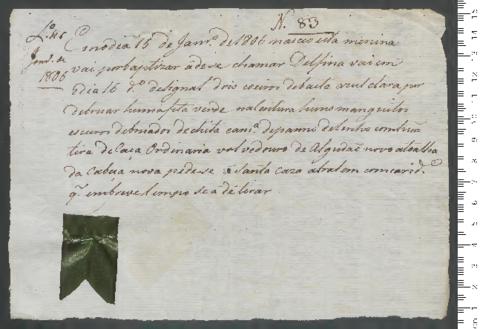 N. 83
Em o dia 15 de Janr.o de 1806 nasceo esta menina
Janr.o de
1806
vai por baptizar a de se chamar Delfina vai em
o dia 16 d.o de signal dois coeiros de baeta azul clara por
debruar huma fita verde na cintura huns manguitos
escuros debruados de chita camiza de panno de linho com huma
tira de Caça Ordinaria volvedouro de Algudão novo atoalha
da Cabeça nova pede-se a Santa Caza a tratem com carid.e
q. em breve tempo se a de tirar